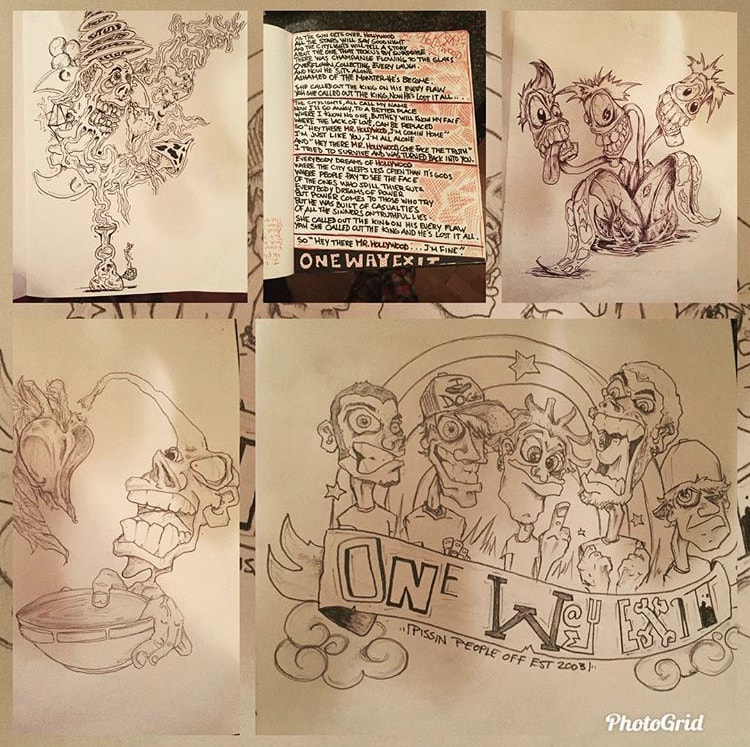 AS THE SUN SETS OVER HOLLYWOOD
ALL THE STARS WILL SAY GOODNIGHT
AND THE CITYLIGHTS WILL TELL A STORY
ABOUT THE ONE THAT TOOK US BY SURPRISE
THERE WAS CHAMPAGNE FLOWING TO THE GLASS
OVERFLOWN, COLLECTING EVERY LAUGH.
AND NOW HE SITS ALONE
ASHAMED OF THE MONSTER HE'S BECOME.
SHE CALLED OUT THE KING ON HIS EVERY FLAW
YAH SHE CALLED OUT THE KING, NOW HE'S LOST IT ALL...
THE CITYLIGHTS, ALL CALL MY NAME
NOW I'LL GO AWAY, TO A BETTER PLACE
WHERE I KNOW NO ONE, BUT THEY WILL KNOW MY FACE
WHERE THE LACK OF LOVE, CAN BE REPLACED
SO "HEY THERE MR. HOLLYWOOD, I'M COMIN HOME"
I'M JUST LIKE YOU, I'M ALL ALONE
AND "HEY THERE MR. HOLLYWOOD, COME FACE THE TRUTH"
I TRIED TO SURVIVE AND WAS TURNED BACK INTO YOU.
EVERYBODY DREAMS OF HOLLYWOOD
WHERE THE CITY SLEEPS LESS OFTEN THAN IT'S GODS
WHERE PEOPLE PAY TO SEE THE FACE
OF THE ONES WHO SPILL THIER GUTS
EVERYBODY DREAMS OF POWER
BUT POWER COMES TO THOSE WHO TRY
BUT HE WAS BUILT OF CASUALTIES
OF ALL THE SINNERS ON TRUMPFUL LIES
SHE CALLED OUT THE KING ON HIS EVERY FLAW
YAH SHE CALLED OUT THE KING AND HE'S LOST IT ALL.
SO "HEY THERE MR. HOLLYWOOD... I'M FINE"
ONE WAY EXIT
ONE W@Y EXIT
PISSIN PEOPLE OFF EST 2003
PhotoGrid